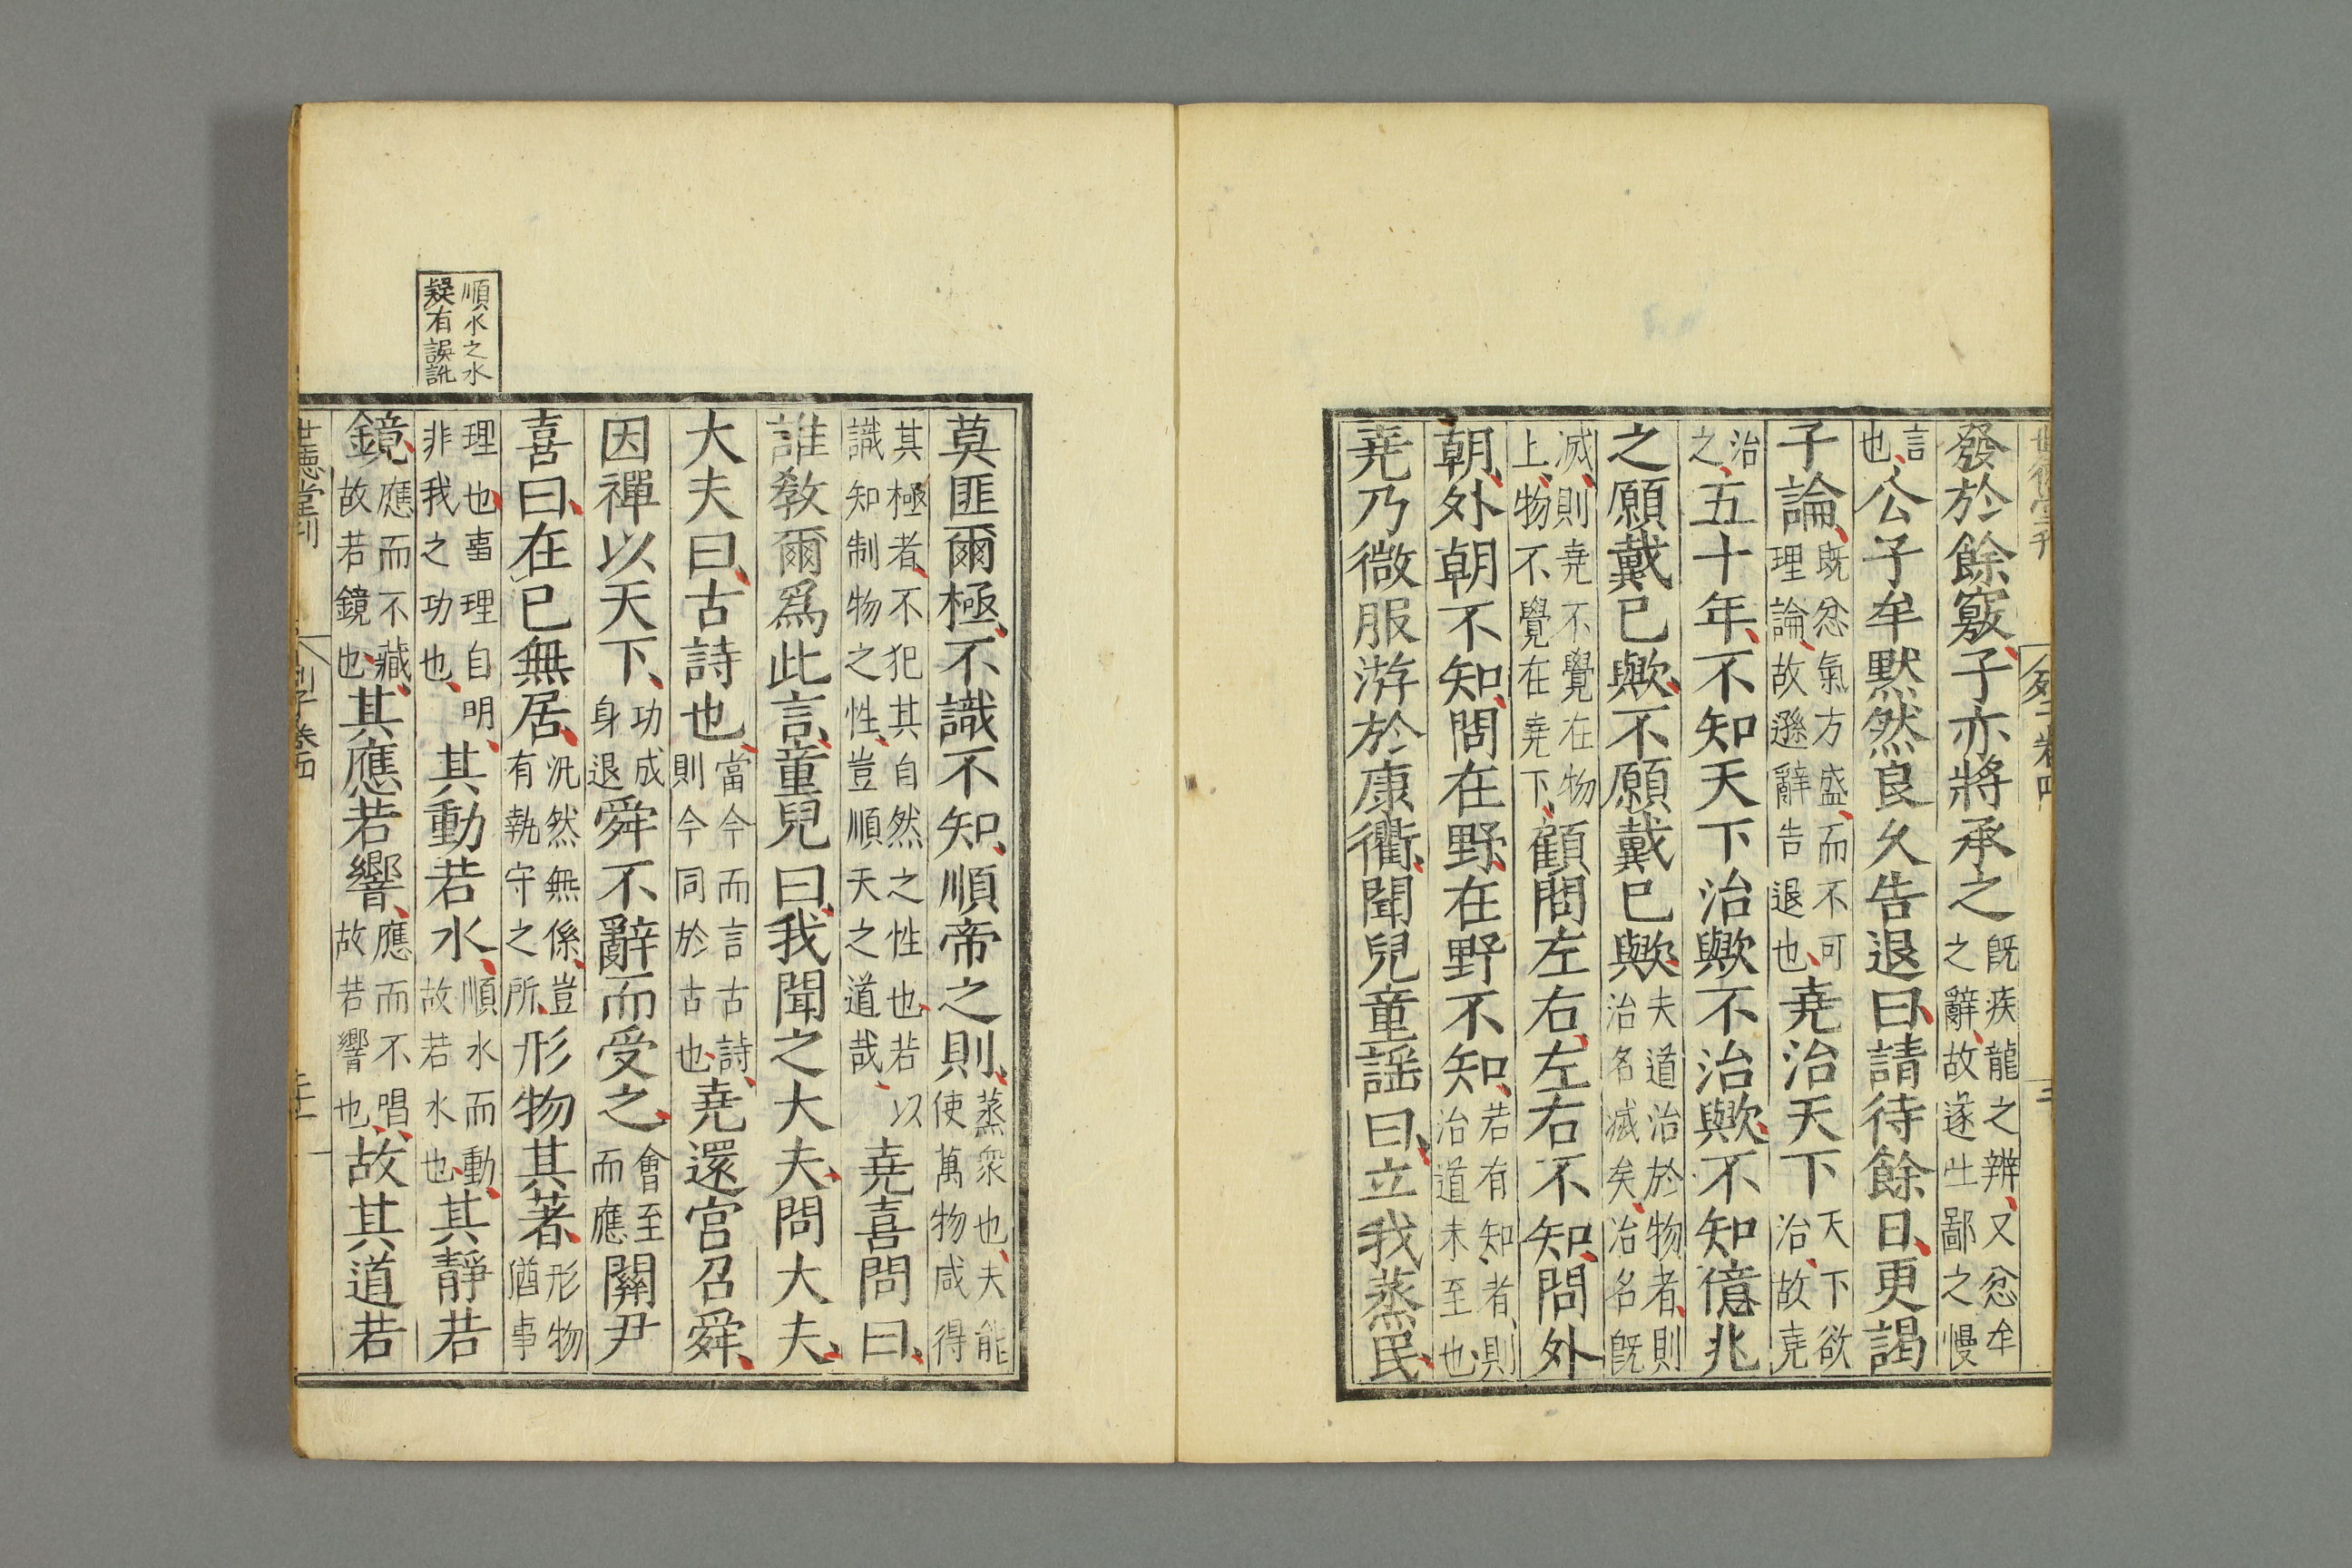 發於餘竅子亦將承之既疾龍之辨又忿牟之辭故遂吐鄙之慢
言也公子牟默然良久告退曰請待餘日更謁
子論既忿氣方盛而不可理論故遜辭告退也堯治天下天下欲治故堯
治之五十年不知天下治歟不治歟不知億兆
之願戴已歟不願戴已歟夫道治於物者則治名滅矣治名既
滅則堯不覺在物上物不覺在堯下顧問左右左右不知問外
朝外朝不知問在野在野不知若有知者則治道未至也
堯乃微服游於康衢聞兒童謡曰立我蒸民
莫匪爾極不識不知順帝之則蒸衆也夫能使萬物咸得
其極者不犯其自然之性也若以識知制物之性豈順天之道哉堯喜問曰
誰敎爾爲此言童兒曰我聞之大夫問大夫
大夫曰古詩也當今而言古詩則今同於古也堯還宮召舜
因禪以天下功成身退舜不辭而受之會至而應關尹
喜曰在已無居汎然無係豈有執守之所形物其著形物猶事
理也事理自明非我之功也其動若水順水而動故若水也其靜若
鏡應而不藏故若鏡也其應若響應而不唱故若響也故其道若
順水之水
疑有誤訛
世德堂刊
列子卷四